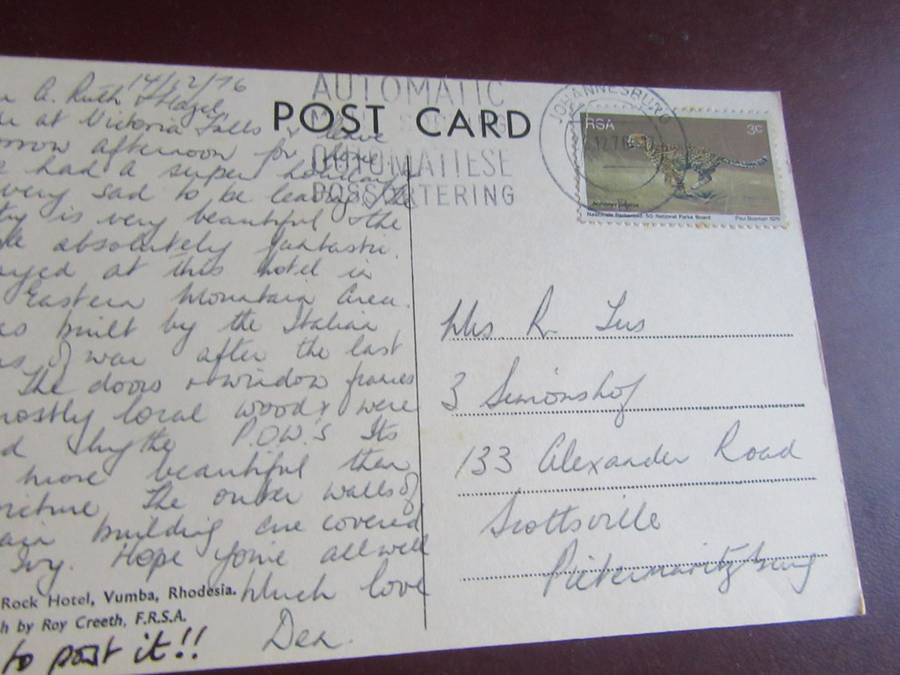 14/12/76
A. Ruth & Hazel
at Victoria Falls & leave
afternoon for
had a super holiday
very sad to be leaving the
is very beautiful & the
absolutely fantastic.
at this hotel in
Eastern Mountain Area.
built by the Italian
of war after the last
The doors & window frames
mostly local wood & were
by the P.O.W.'s Its
more beautiful then
picture The outer walls of
building are covered
Ivy. Hope you're all well
Much love
Dea.
Rock Hotel, Vumba, Rhodesia.
h by Roy Creeth, F.R.S.A.
to post it!!
POST CARD
AUTOMATIC
OUTOMATIESE
POSSORTERING
JOHANNESBURG
12.76
RSA
3c
National Parks Board
Paul Bosman 1976
Mrs R.
3 Simonshof
133 Alexander Road
Scottsville
Pietermaritzburg